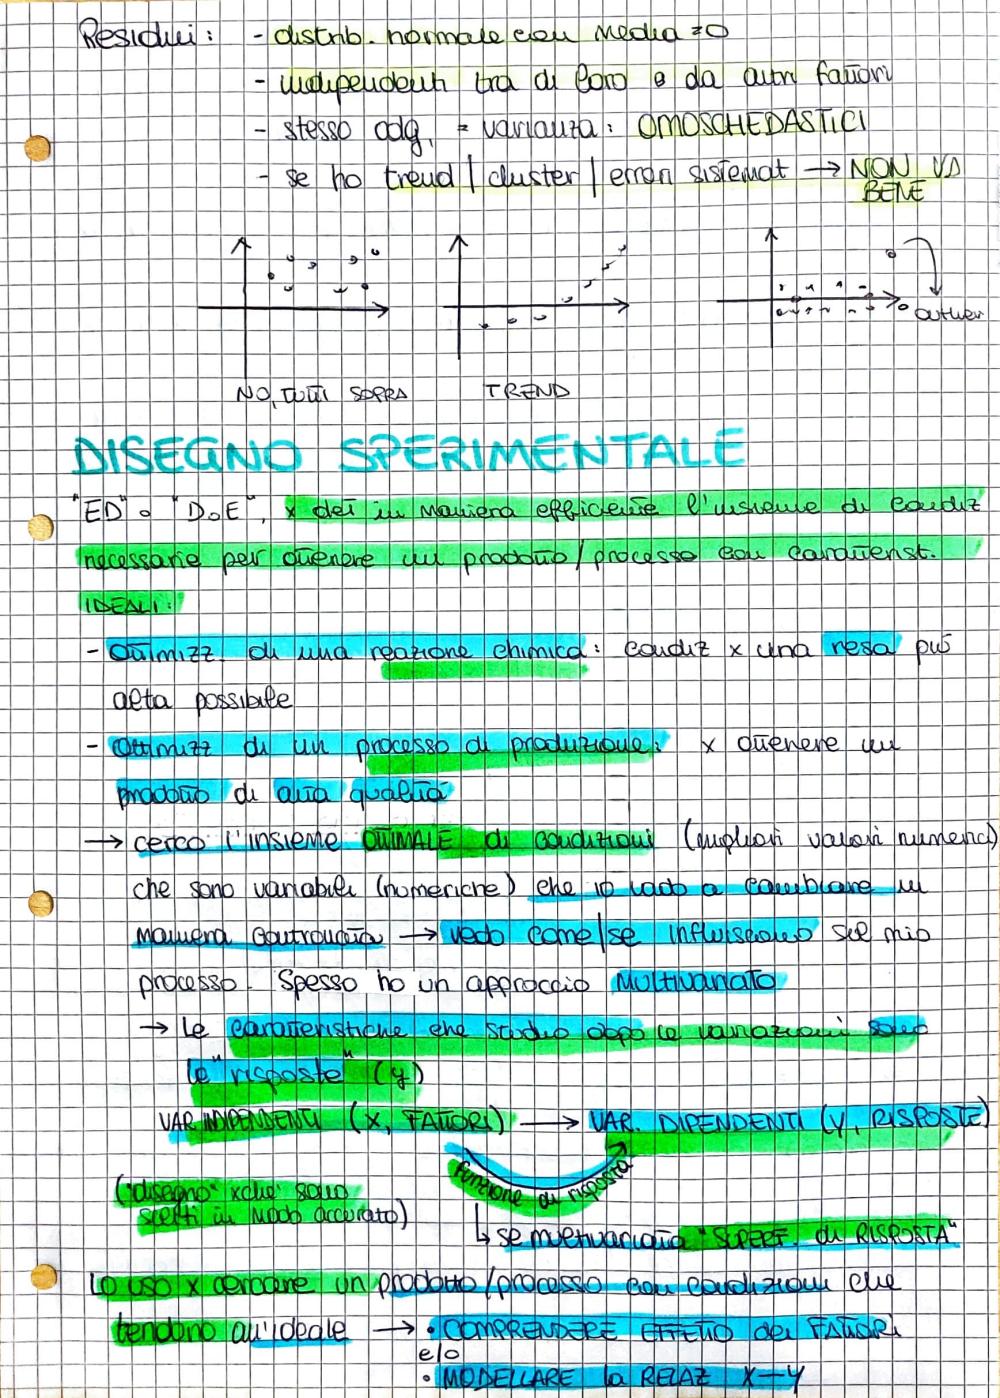 Residui: - distrib. normale con media = 0
- indipendenti tra di loro e da altri fattori
- stesso odg, = varianza: OMOSCHEDASTICI
- se ho trend / cluster / errori sistemat → NON VA BENE
NO, TUTTI SOPRA
TREND
outlier
DISEGNO SPERIMENTALE
"ED" o "DoE", x det in maniera efficiente l'insieme di condiz
necessarie per ottenere un prodotto/processo con caratterist.
IDEALI:
- Ottimizz. di una reazione chimica: condiz x una resa più
alta possibile
- Ottimizz di un processo di produzione: x ottenere un
prodotto di alta qualità
→ cerco l'insieme OTTIMALE di condizioni (migliori valori numerici)
che sono variabili (numeriche) che io vado a cambiare in
maniera controllata → vedo come/se influiscono sul mio
processo. Spesso ho un approccio Multivariato
→ Le caratteristiche che studio dopo le variazioni sono
le "risposte" (y)
VAR INDIPENDENTI (X, FATTORI) → VAR. DIPENDENTI (Y, RISPOSTE)
funzione di risposta
("disegno" xché sono
scelti in modo accurato)
↳ se multivariata "SUPERF. di RISPOSTA"
Lo uso x cercare un prodotto/processo con condizioni che
tendono all'ideale → • COMPRENDERE EFFETTO dei FATTORI
e/o
• MODELLARE la RELAZ X-Y